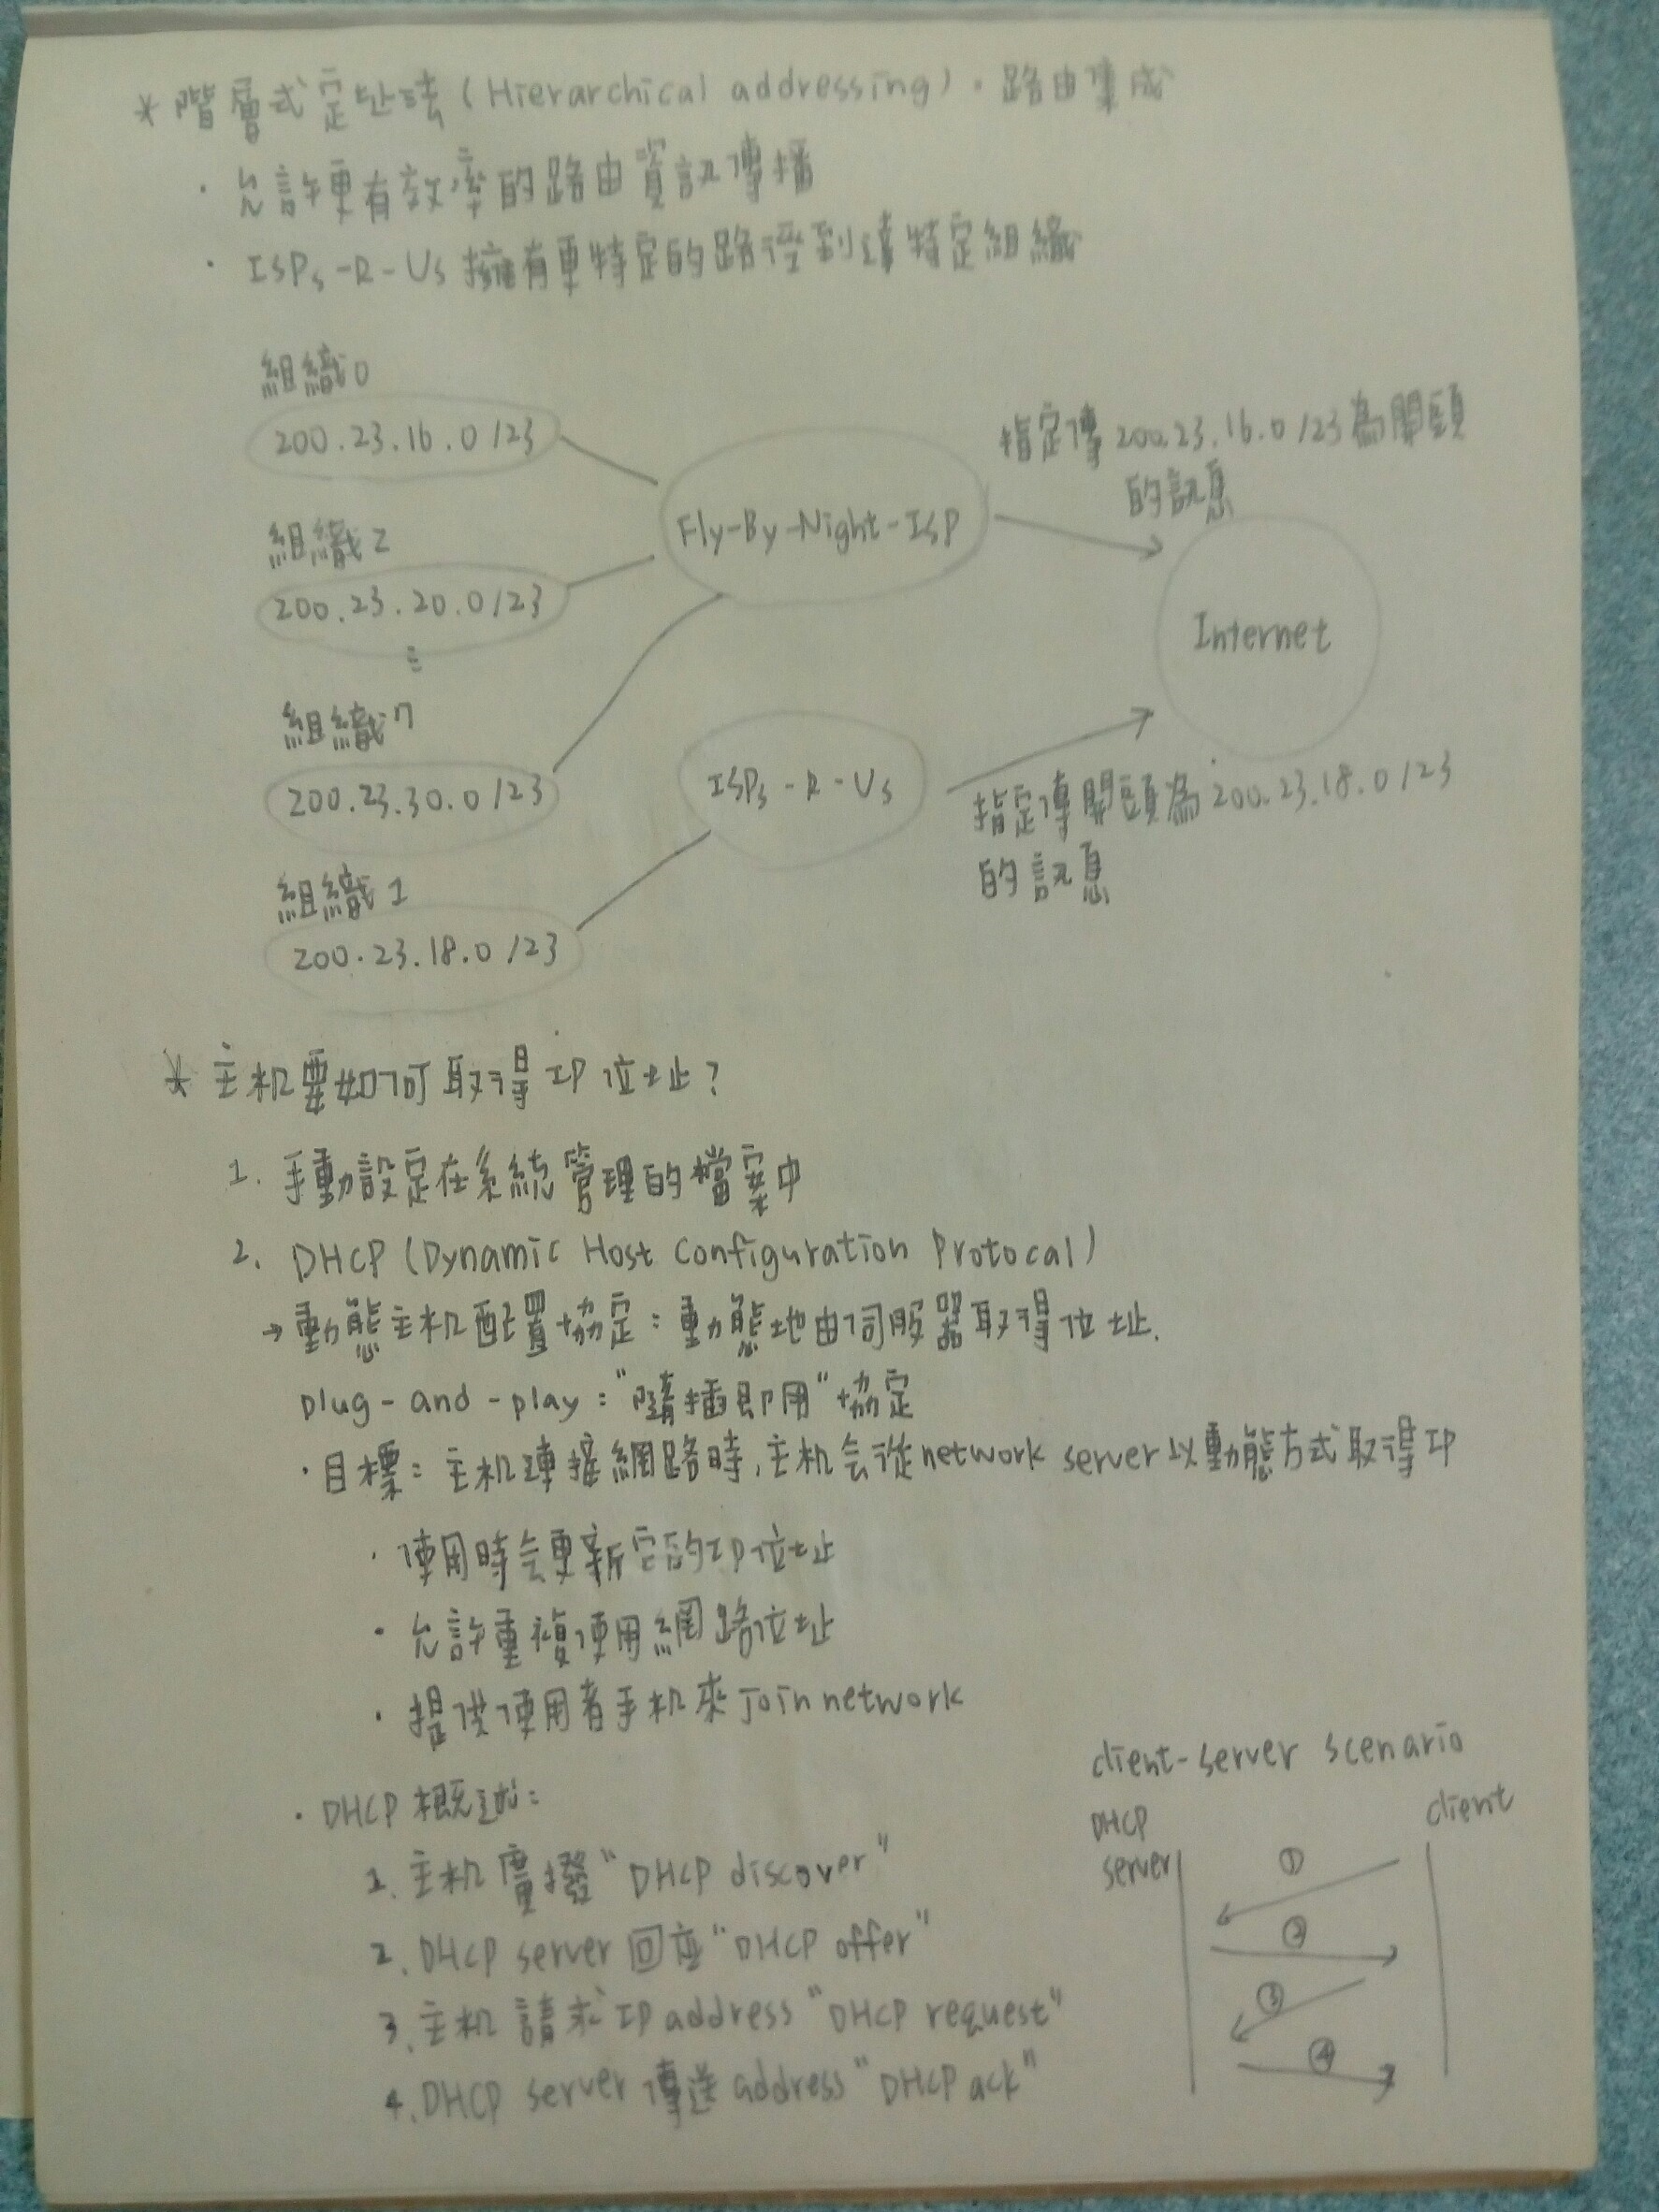 * 階層式定址法 (Hierarchical addressing)、路由集成
· 允許更有效率的路由資訊傳播
· ISPs-R-Us 擁有更特定的路徑到達特定組織
組織0
200.23.16.0/23
組織2
200.23.20.0/23
⋮
組織7
200.23.30.0/23
組織1
200.23.18.0/23
Fly-By-Night-ISP
ISPs-R-Us
指定傳 200.23.16.0/23為開頭
的訊息
Internet
指定傳開頭為 200.23.18.0/23
的訊息
* 主机要如何取得 IP 位址?
1. 手動設定在系統管理的檔案中
2. DHCP (Dynamic Host Configuration Protocal)
→ 動態主机配置協定：動態地由伺服器取得位址.
plug-and-play："隨插即用"協定
· 目標：主机連接網路時,主机会從network server以動態方式取得IP
· 使用時会更新它的IP位址
· 允許重複使用網路位址
· 提供使用者手机來join network
· DHCP 概述：
1. 主机廣撥"DHCP discover"
2. DHCP server 回應"DHCP offer"
3. 主机 請求 IP address "DHCP request"
4. DHCP server 傳送 address "DHCP ack"
client-server scenario
DHCP
server
client
①
②
③
④